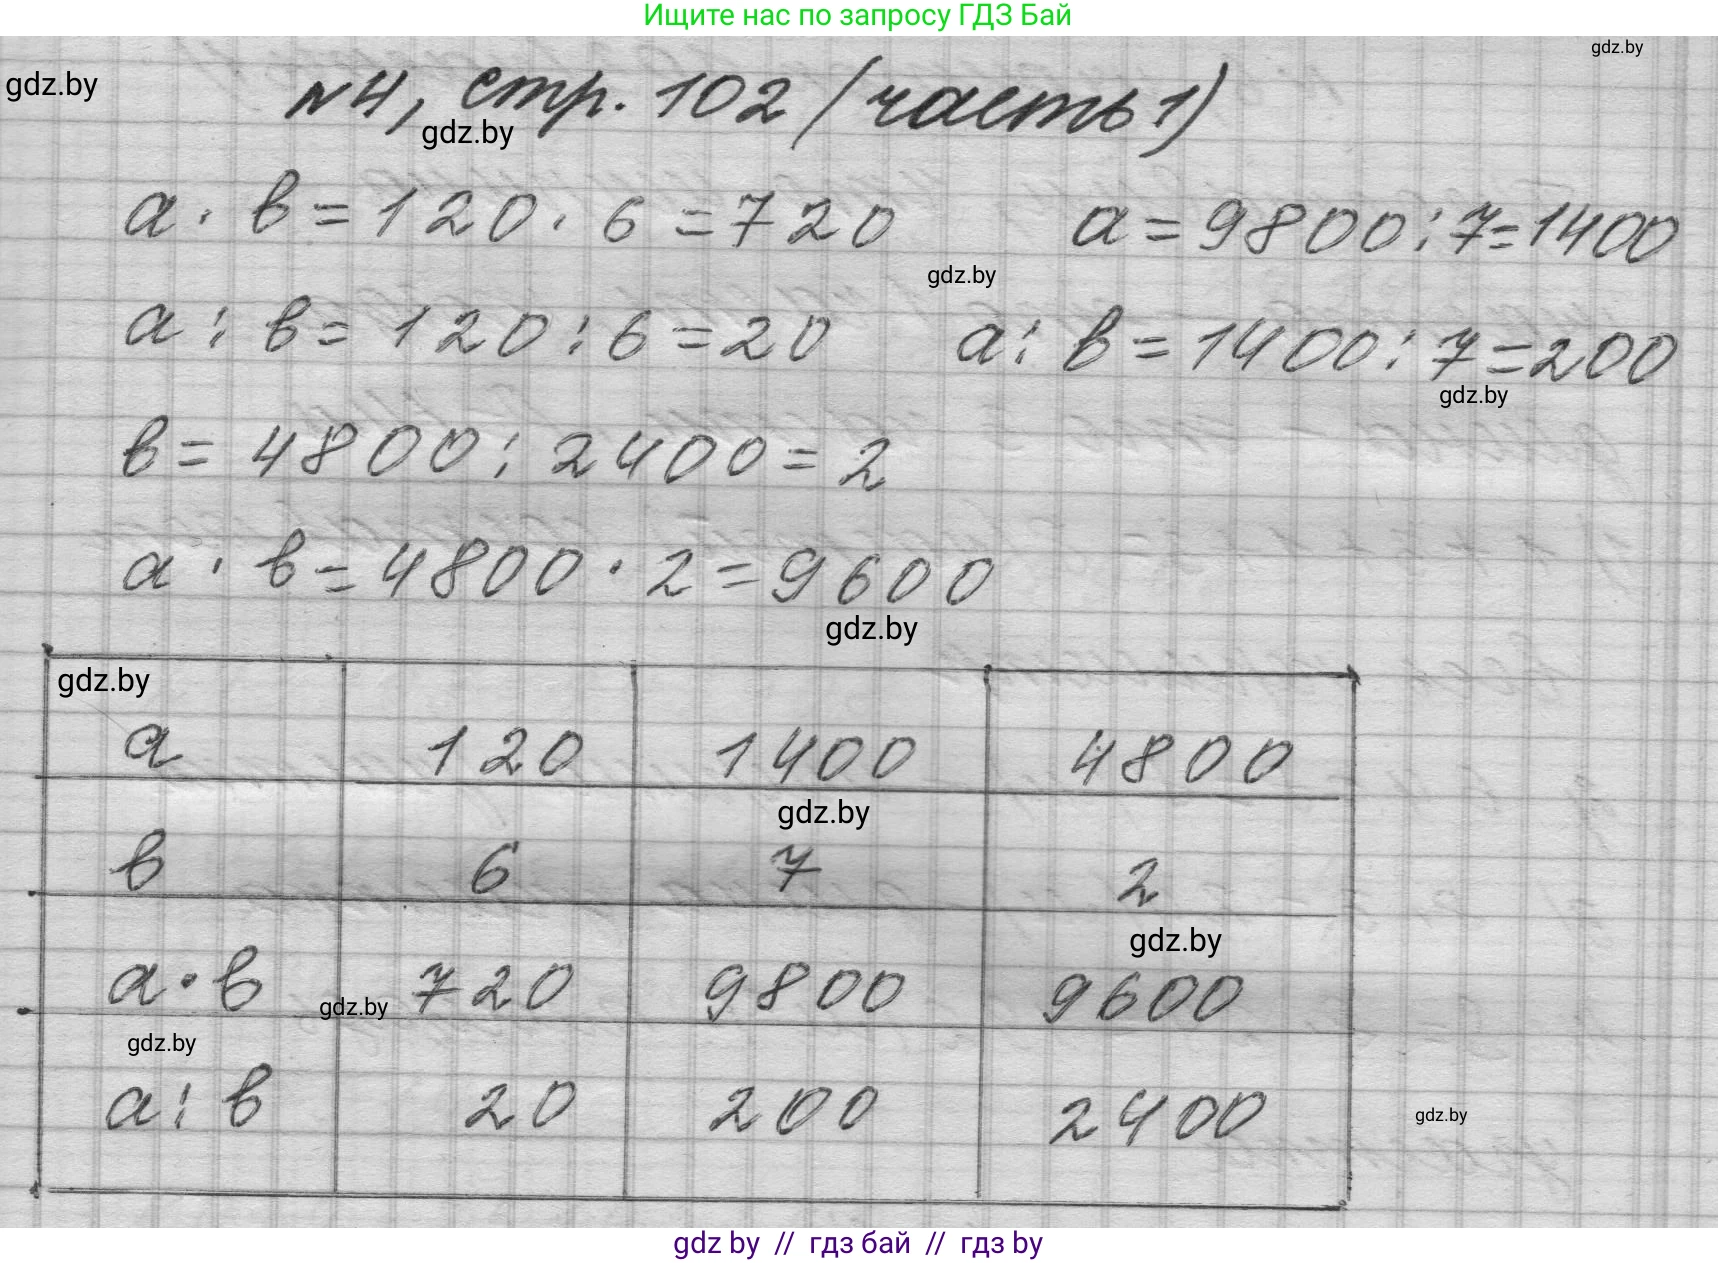 Ищите нас по запросу ГДЗ Бай
gdz.by
gdz.by
№4, стр. 102 (часть 1)
gdz.by
a · b = 120 · 6 = 720
a = 9800 : 7 = 1400
gdz.by
a : b = 120 : 6 = 20
a : b = 1400 : 7 = 200
gdz.by
b = 4800 : 2400 = 2
a · b = 4800 · 2 = 9600
gdz.by
gdz.by
a 120 1400 4800
gdz.by
b 6 7 2
gdz.by
a · b 720 9800 9600
gdz.by
gdz.by
a : b 20 200 2400
gdz.by
gdz by // гдз бай // гдз by